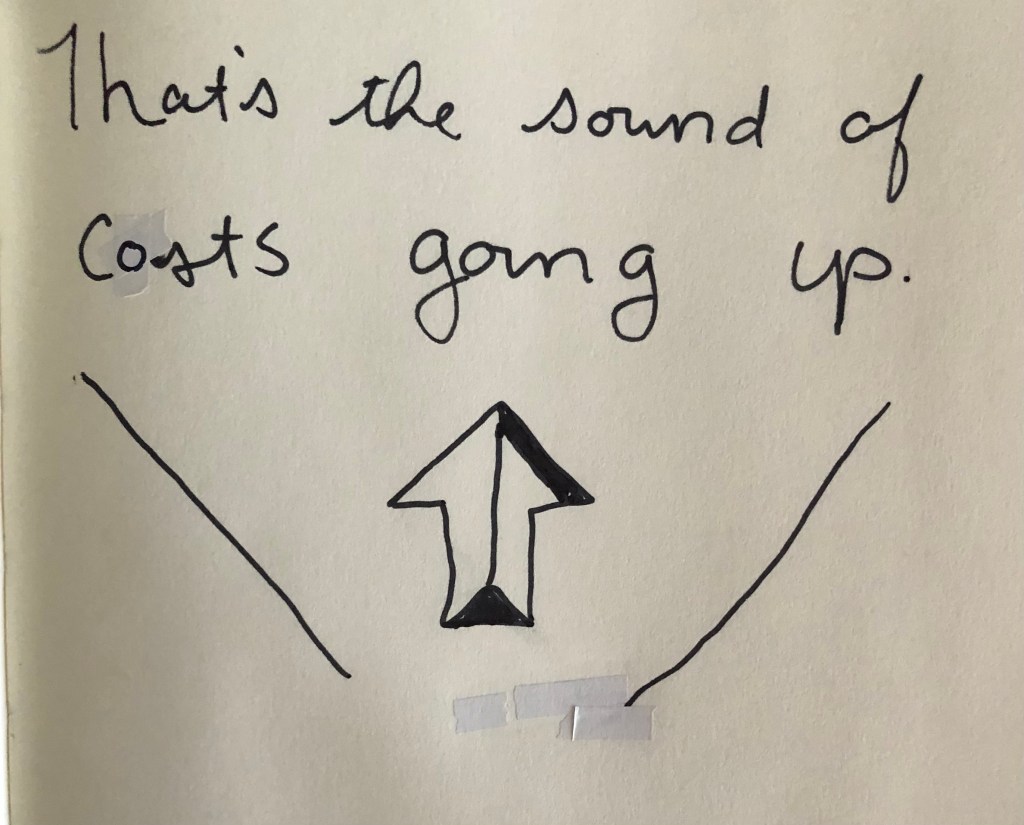 That's the sound of
Costs going up.